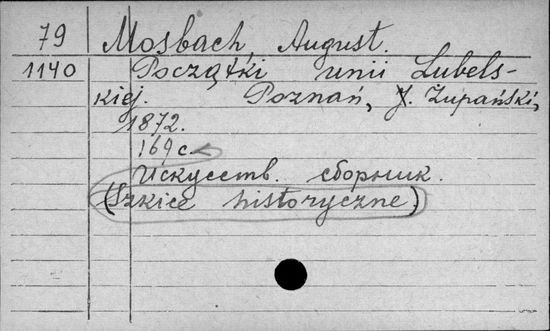 79 Mosbach, August.
1140 Początki unii Lubels-
kiej. Poznań, J. Żupański,
1872.
169 c.
Искусств. сборник.
(Szkice historyczne.)